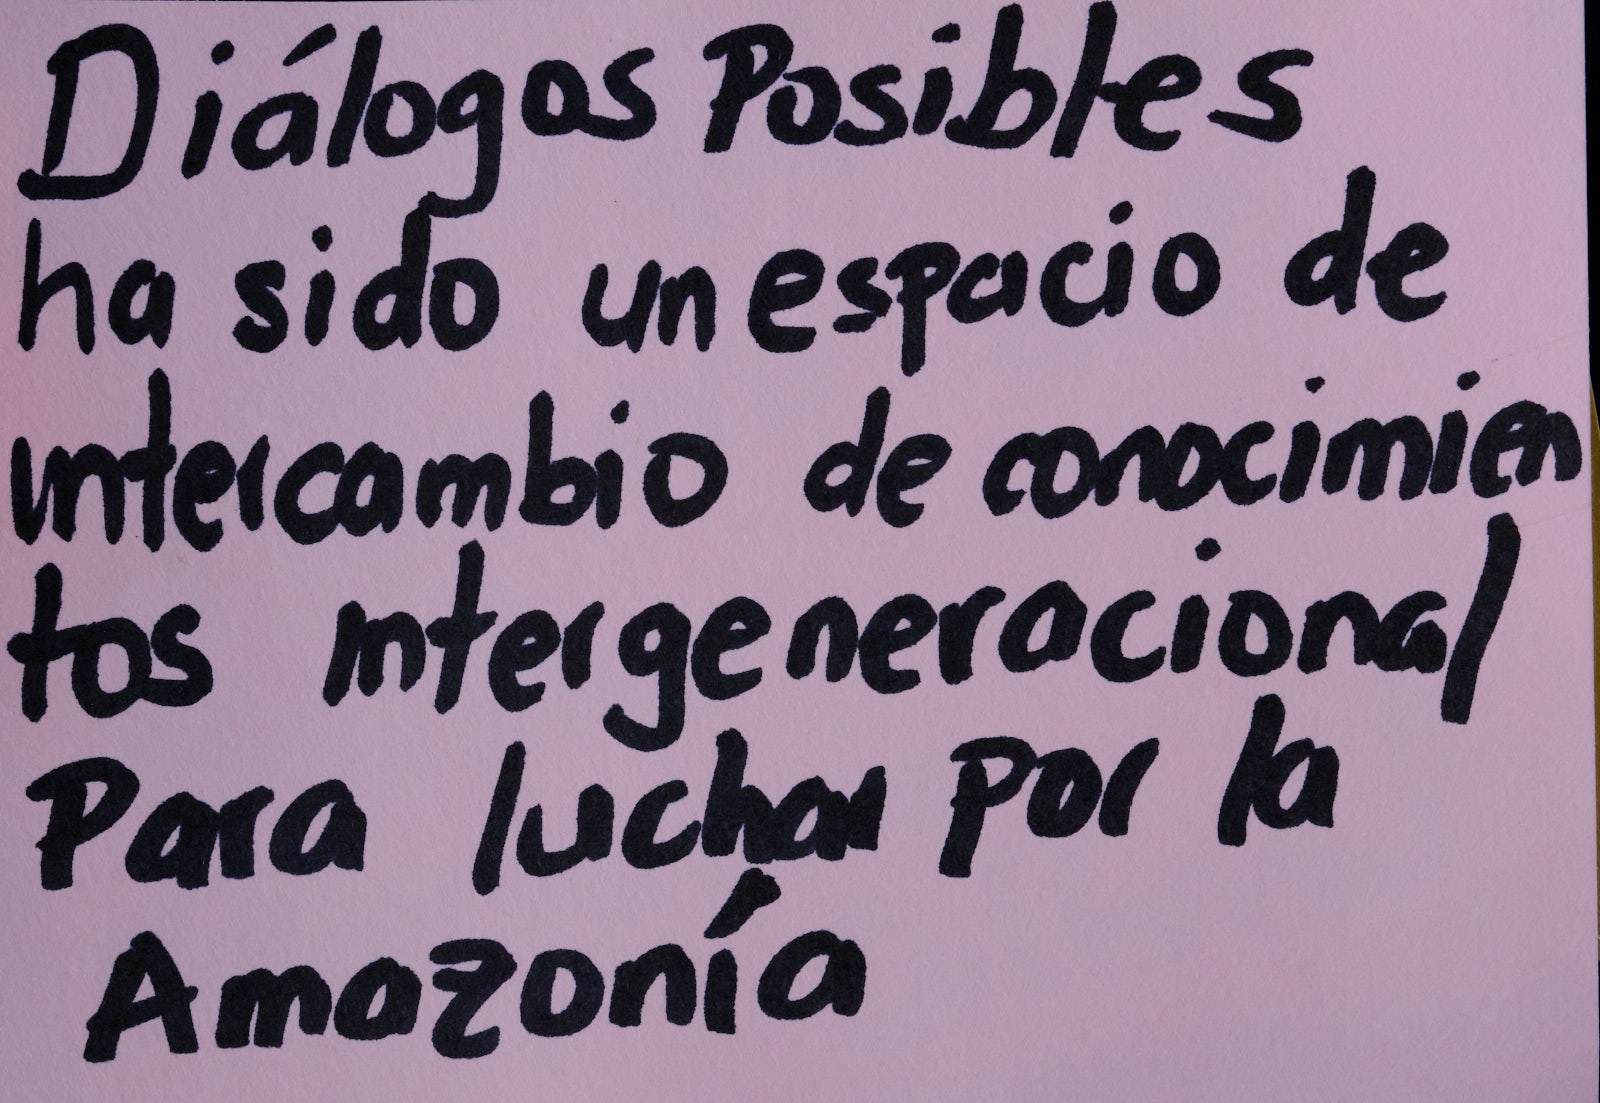 Diálogos Posibles
ha sido un espacio de
intercambio de conocimien
tos intergeneracional
Para luchar por la
Amazonía